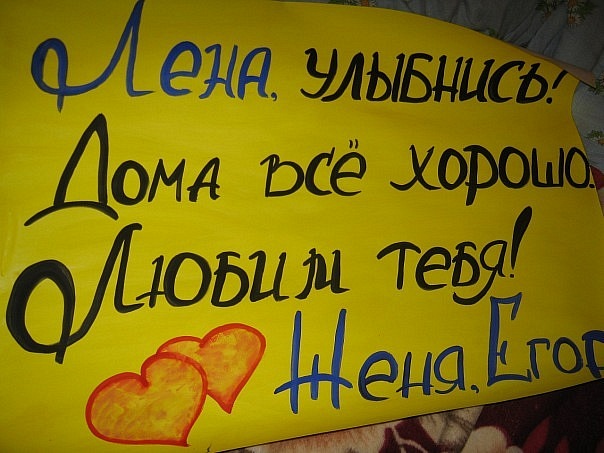 Лена, улыбнись!
Дома всё хорошо.
Любим тебя!
Женя, Егор